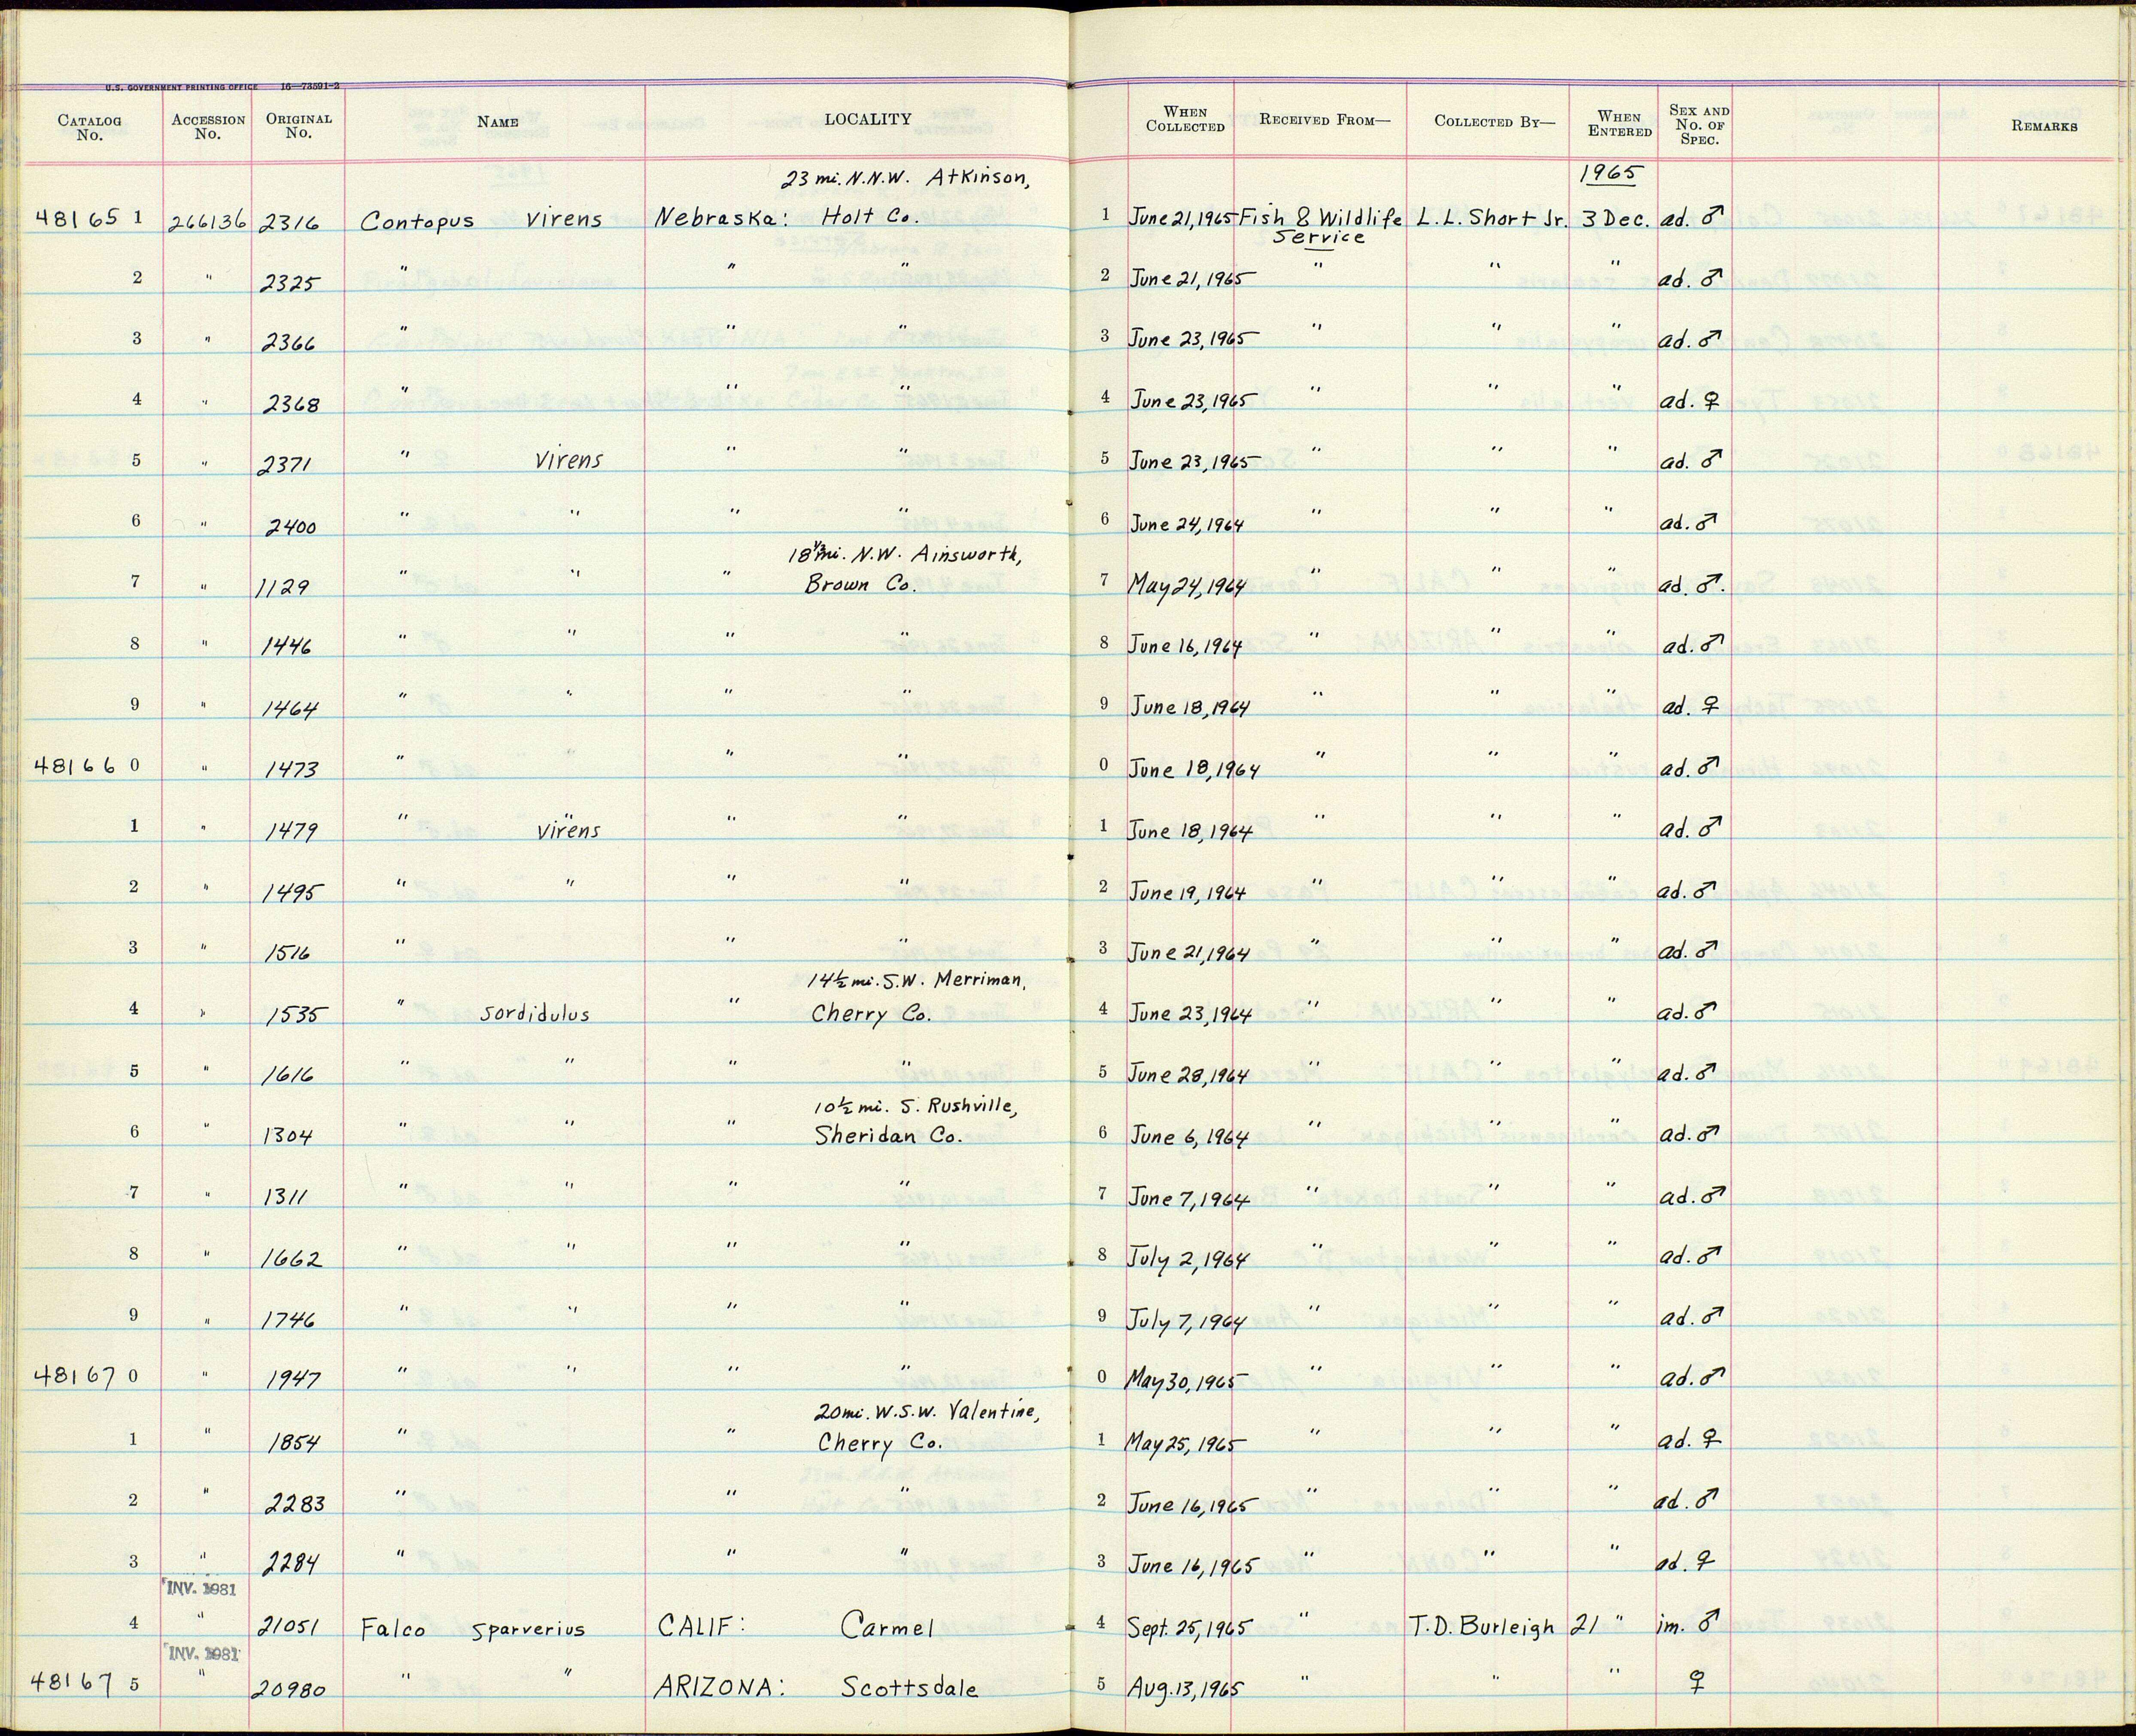 U.S. GOVERNMENT PRINTING OFFICE 16—73591-2
CATALOG No. ACCESSION No. ORIGINAL No. NAME LOCALITY WHEN COLLECTED RECEIVED FROM— COLLECTED BY— WHEN ENTERED SEX AND No. OF SPEC. REMARKS
23 mi. N.N.W. Atkinson, 1965
48165 1 266136 2316 Contopus virens Nebraska: Holt Co. 1 June 21, 1965 Fish & Wildlife L.L. Short Jr. 3 Dec. ad. ♂
Service
2 " 2325 " " " 2 June 21, 1965 " " " ad. ♂
3 " 2366 " " " 3 June 23, 1965 " " " ad. ♂
4 " 2368 " " " 4 June 23, 1965 " " " ad. ♀
5 " 2371 " virens " " 5 June 23, 1965 " " " ad. ♂
6 " 2400 " " " " 6 June 24, 1964 " " " ad. ♂
mi. N.W. Ainsworth,
7 " 1129 " " " Brown Co. 7 May 24, 1964 " " " ad. ♂.
8 " 1446 " " " " 8 June 16, 1964 " " " ad. ♂
9 " 1464 " " " " 9 June 18, 1964 " " " ad. ♀
48166 0 " 1473 " " " " 0 June 18, 1964 " " " ad. ♂
1 " 1479 " virens " " 1 June 18, 1964 " " " ad. ♂
2 " 1495 " " " " 2 June 19, 1964 " " " ad. ♂
3 " 1516 " " " 3 June 21, 1964 " " " ad. ♂
14½ mi. S.W. Merriman,
4 " 1535 " sordidulus " Cherry Co. 4 June 23, 1964 " " " ad. ♂
5 " 1616 " " " " 5 June 28, 1964 " " " ad. ♂
10½ mi. S. Rushville,
6 " 1304 " " " Sheridan Co. 6 June 6, 1964 " " " ad. ♂
7 " 1311 " " " " 7 June 7, 1964 " " " ad. ♂
8 " 1662 " " " " 8 July 2, 1964 " " " ad. ♂
9 " 1746 " " " " 9 July 7, 1964 " " " ad. ♂
48167 0 " 1947 " " " " 0 May 30, 1965 " " " ad. ♂
20 mi. W.S.W. Valentine,
1 " 1854 " " Cherry Co. 1 May 25, 1965 " " " ad. ♀
2 " 2283 " " " 2 June 16, 1965 " " " ad. ♂
3 " 2284 " " " 3 June 16, 1965 " " " ad. ♀
INV. 1981
4 " 21051 Falco sparverius CALIF: Carmel 4 Sept. 25, 1965 " T.D. Burleigh 21 " im. ♂
INV. 1981
48167 5 " 20980 " " ARIZONA: Scottsdale 5 Aug. 13, 1965 " " " ♀